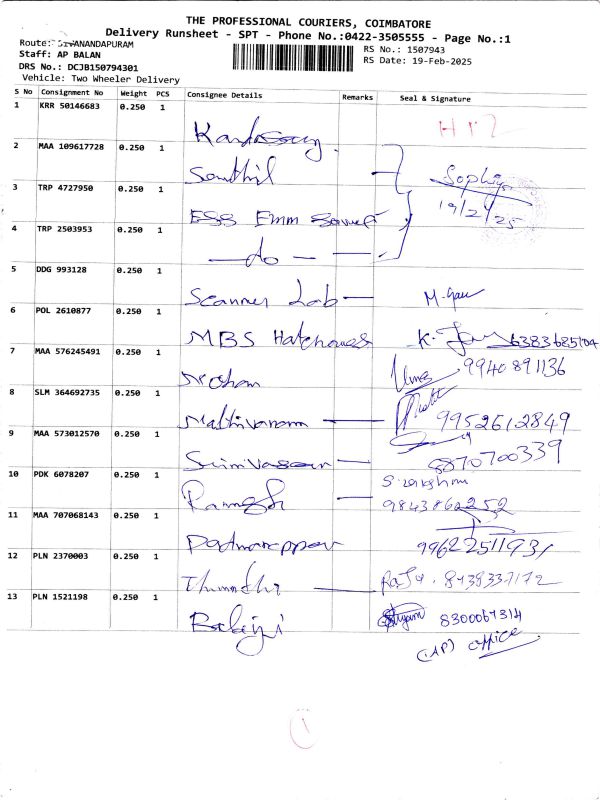 THE PROFESSIONAL COURIERS, COIMBATORE
Delivery Runsheet - SPT - Phone No.:0422-3505555 - Page No.:1
Route: SIVANANDAPURAM
RS No.: 1507943
Staff: AP BALAN
RS Date: 19-Feb-2025
DRS No.: DCJB150794301
Vehicle: Two Wheeler Delivery
S No Consignment No Weight PCS Consignee Details Remarks Seal & Signature
1 KRR 50146683 0.250 1
2 MAA 109617728 0.250 1 Senthil Sophiya
3 TRP 4727950 0.250 1 ESS Emm 19/2/25
4 TRP 2503953 0.250 1 — do — —
5 DDG 993128 0.250 1 Scanner Lab —
6 POL 2610877 0.250 1 MBS Hatcheries K. 6383685104
7 MAA 576245491 0.250 1 Mohan Uma 9940891136
8 SLM 364692735 0.250 1 Mathivanan — 9952612849
9 MAA 573012570 0.250 1 Srinivasan — 8870700339
10 PDK 6078207 0.250 1 Ramesh — 9843862252
11 MAA 707068143 0.250 1 9962251193
12 PLN 2370003 0.250 1 — Raja. 8939337172
13 PLN 1521198 0.250 1 Balaji Shyam 8300067314
(AP) office